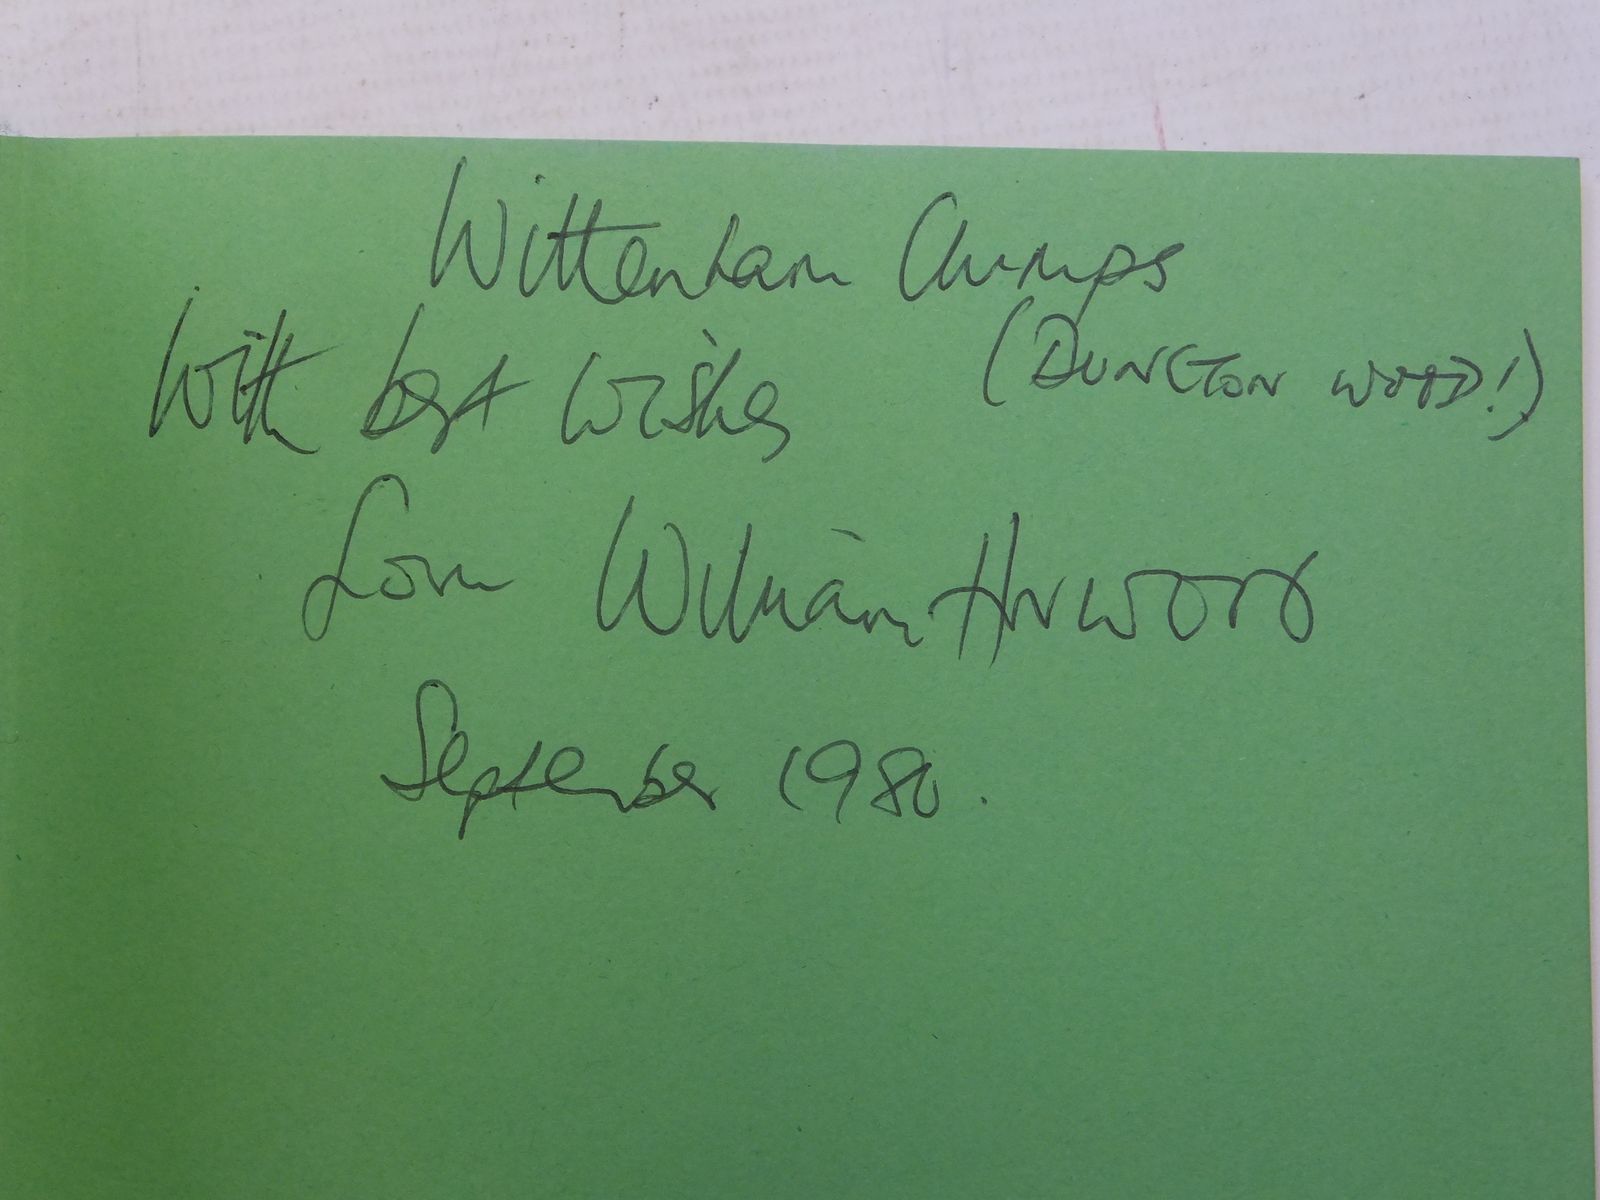 Wittenham Clumps
(DUNCTON WOOD!)
With best wishes
from William Horwood
September 1980.